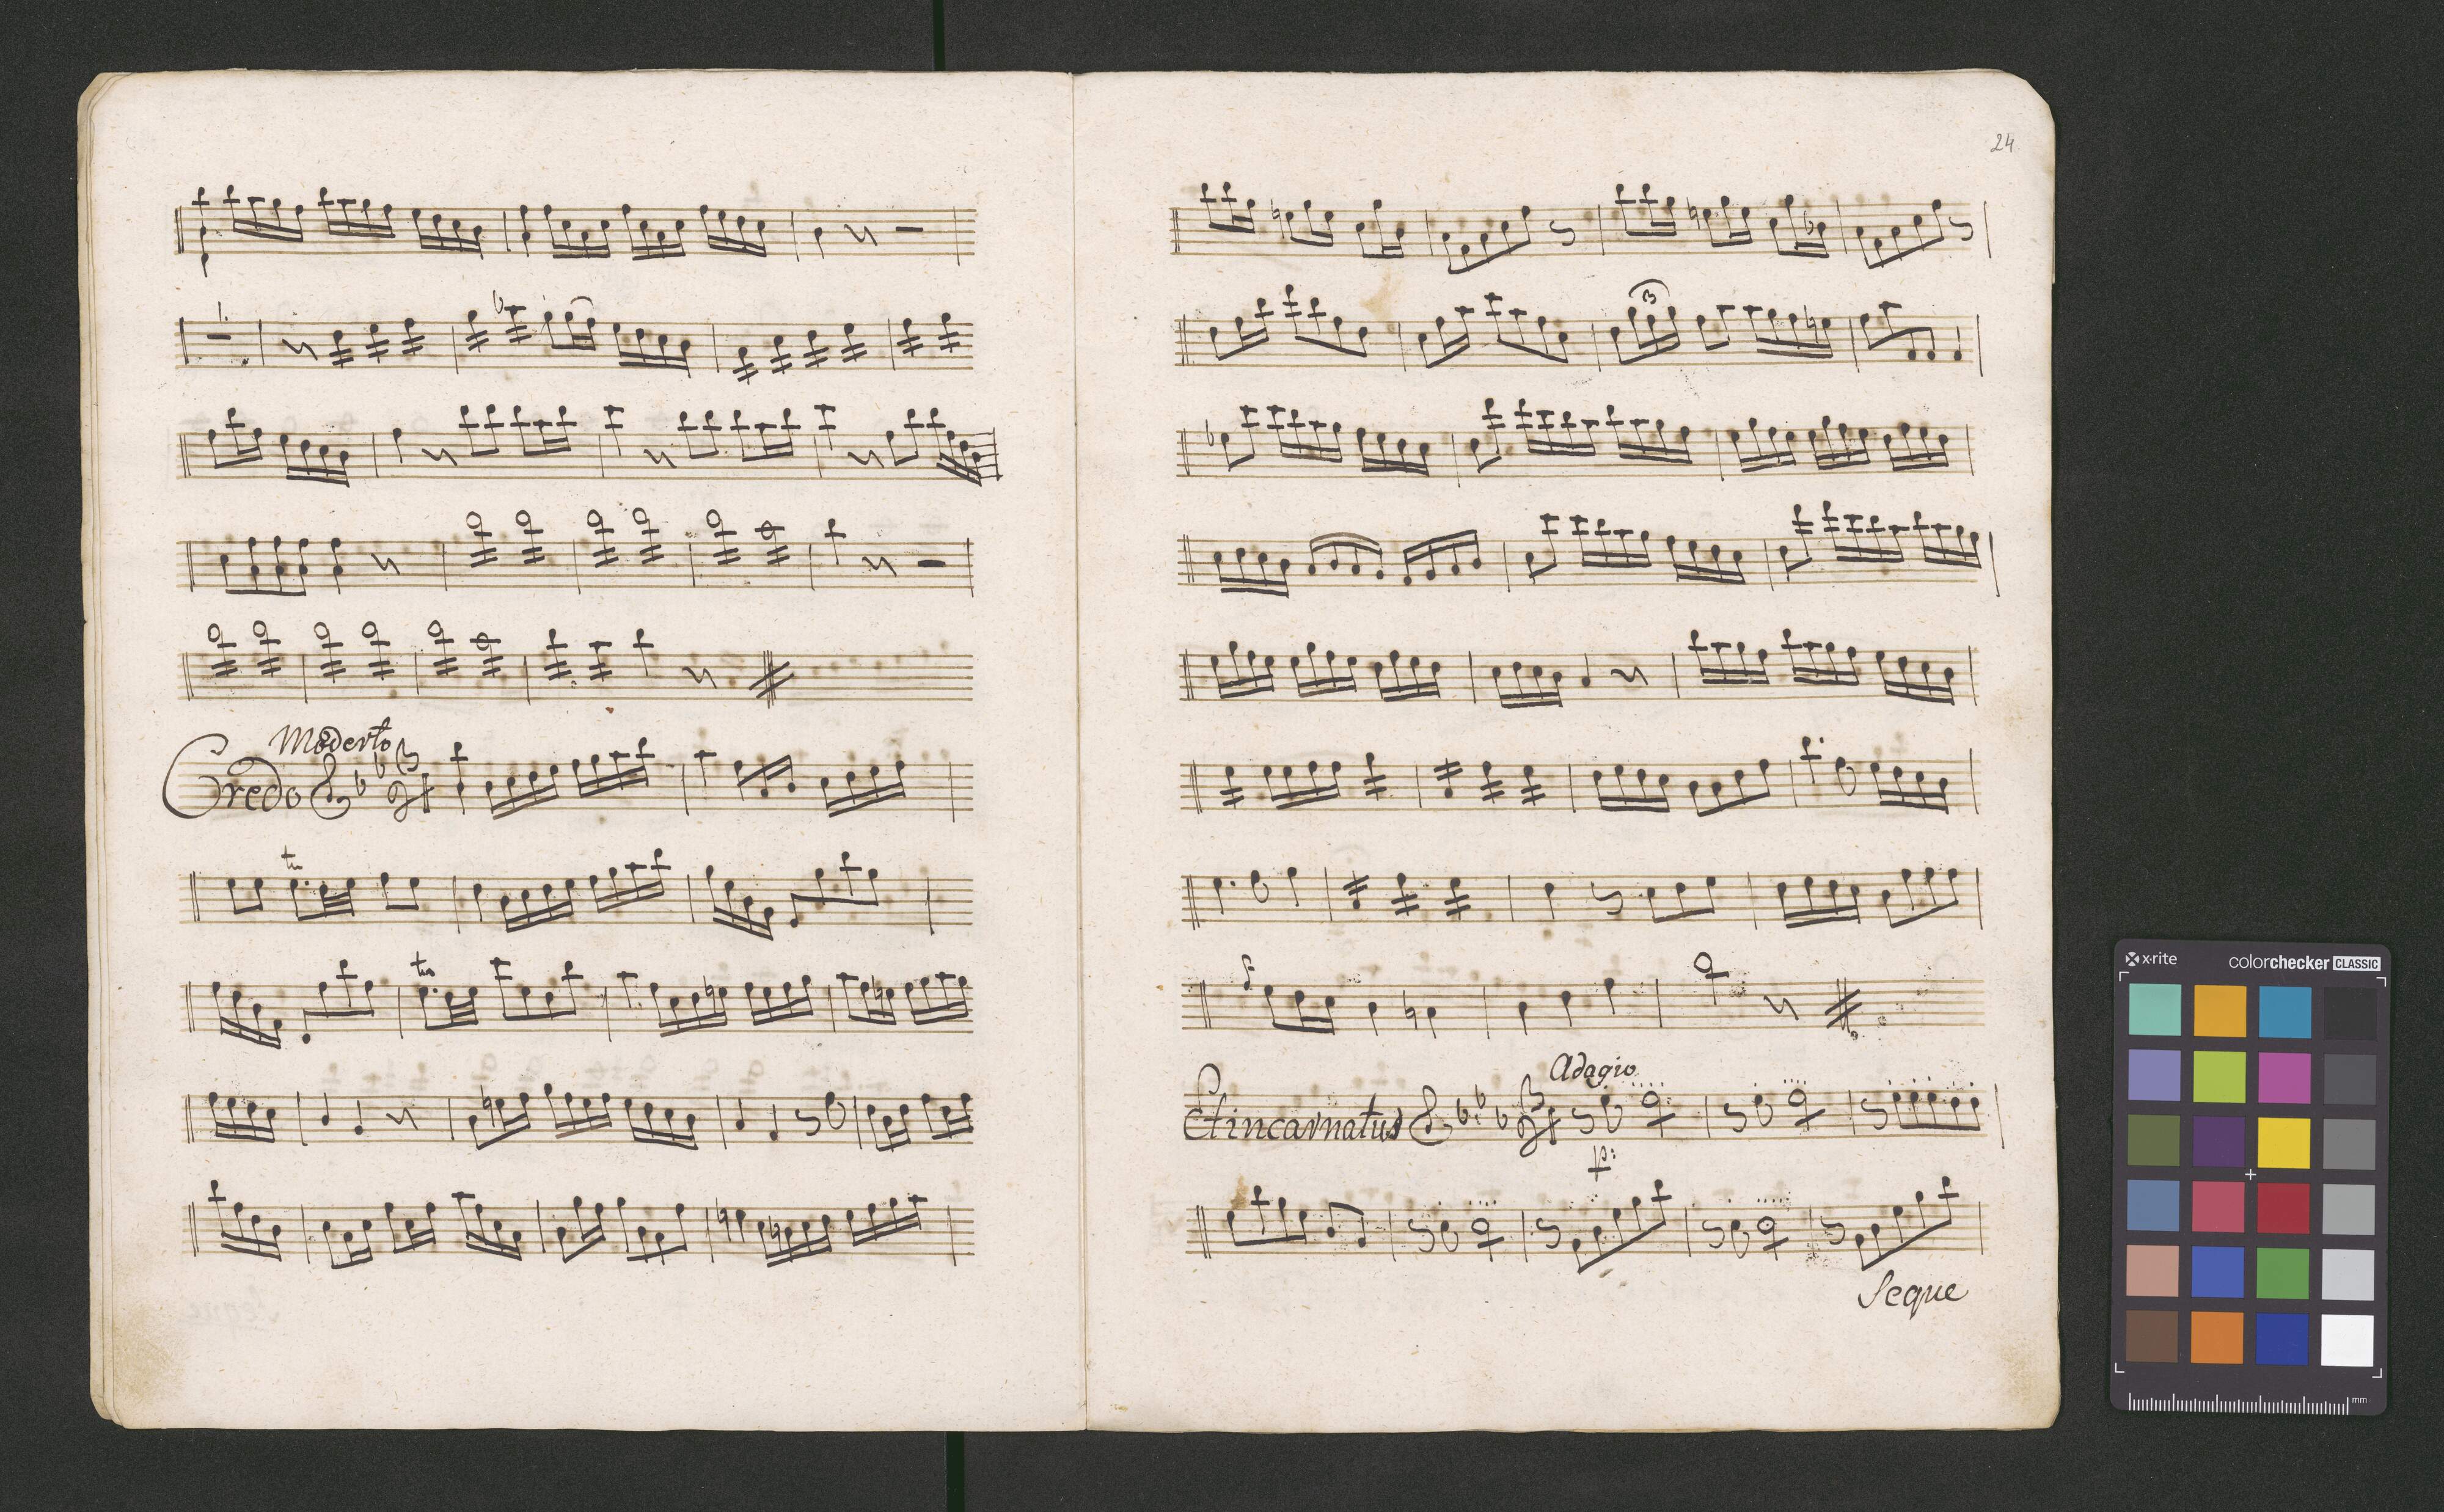 Moderto
Credo
tr
tr
24
3
Adagio
Et incarnatus
p:
Seque
x-rite
colorchecker CLASSIC
mm